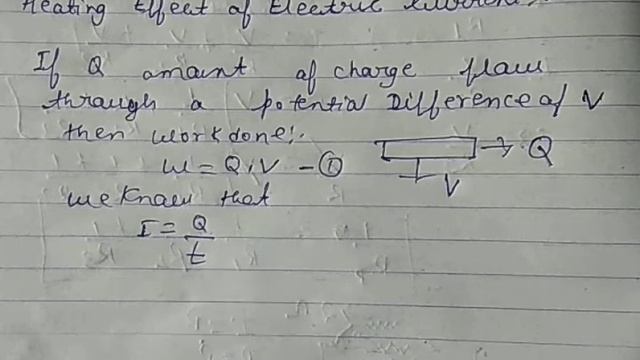 Heating Effect of Electric Current:
If Q amount of charge flow
through a potential Difference of V
then work done:.
W = Q.V - ①
→ Q
V
we know that
I = Q
t